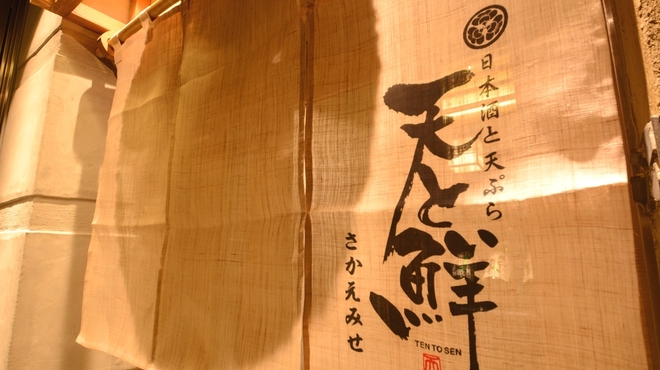 日本酒と天ぷら
天と鮮
さかえみせ
TEN TO SEN